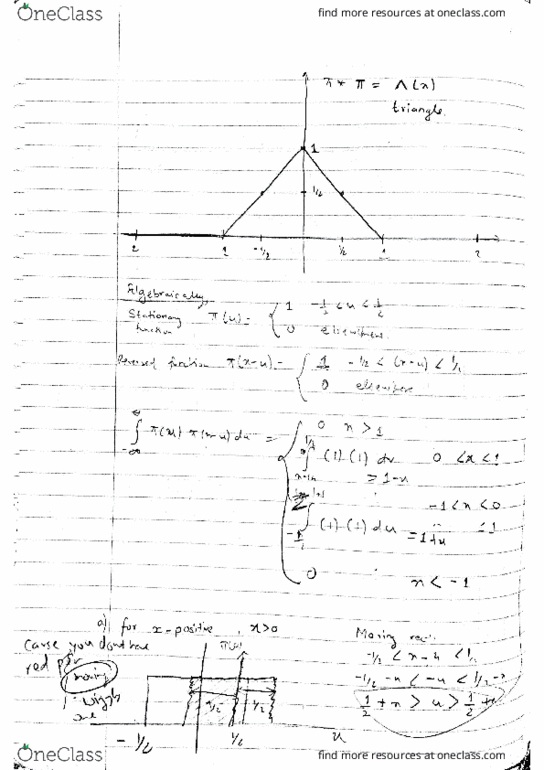 OneClass
find more resources at oneclass.com
π * π = Λ(x)
triangle.
1
1/2
2 1 -1/2 1/2 1 2
Algebraically,
Stationary function π(u) = { 1 -1/2 < u < 1/2
0 elsewhere
Reversed function π(x-u) = { 1 -1/2 < (x-u) < 1/2
0 elsewhere
∞ ∫ -∞ π(u) π(x-u) du = { 0 x > 1
1/2 ∫ (1) (1) du 0 < x < 1
= 1-x
-1 < x < 0
∫ (1) (1) du = 1+x
-1/2
0 x < -1
a) for x-positive, x>0
cause you dont have
red
moving
π(u)
1/2 1/2
-1/2 1/2 u
Moving rec:
-1/2 < x-u < 1/2
-1/2-x < -u < 1/2-x
1/2 + x > u > 1/2 + x
OneClass
find more resources at oneclass.com